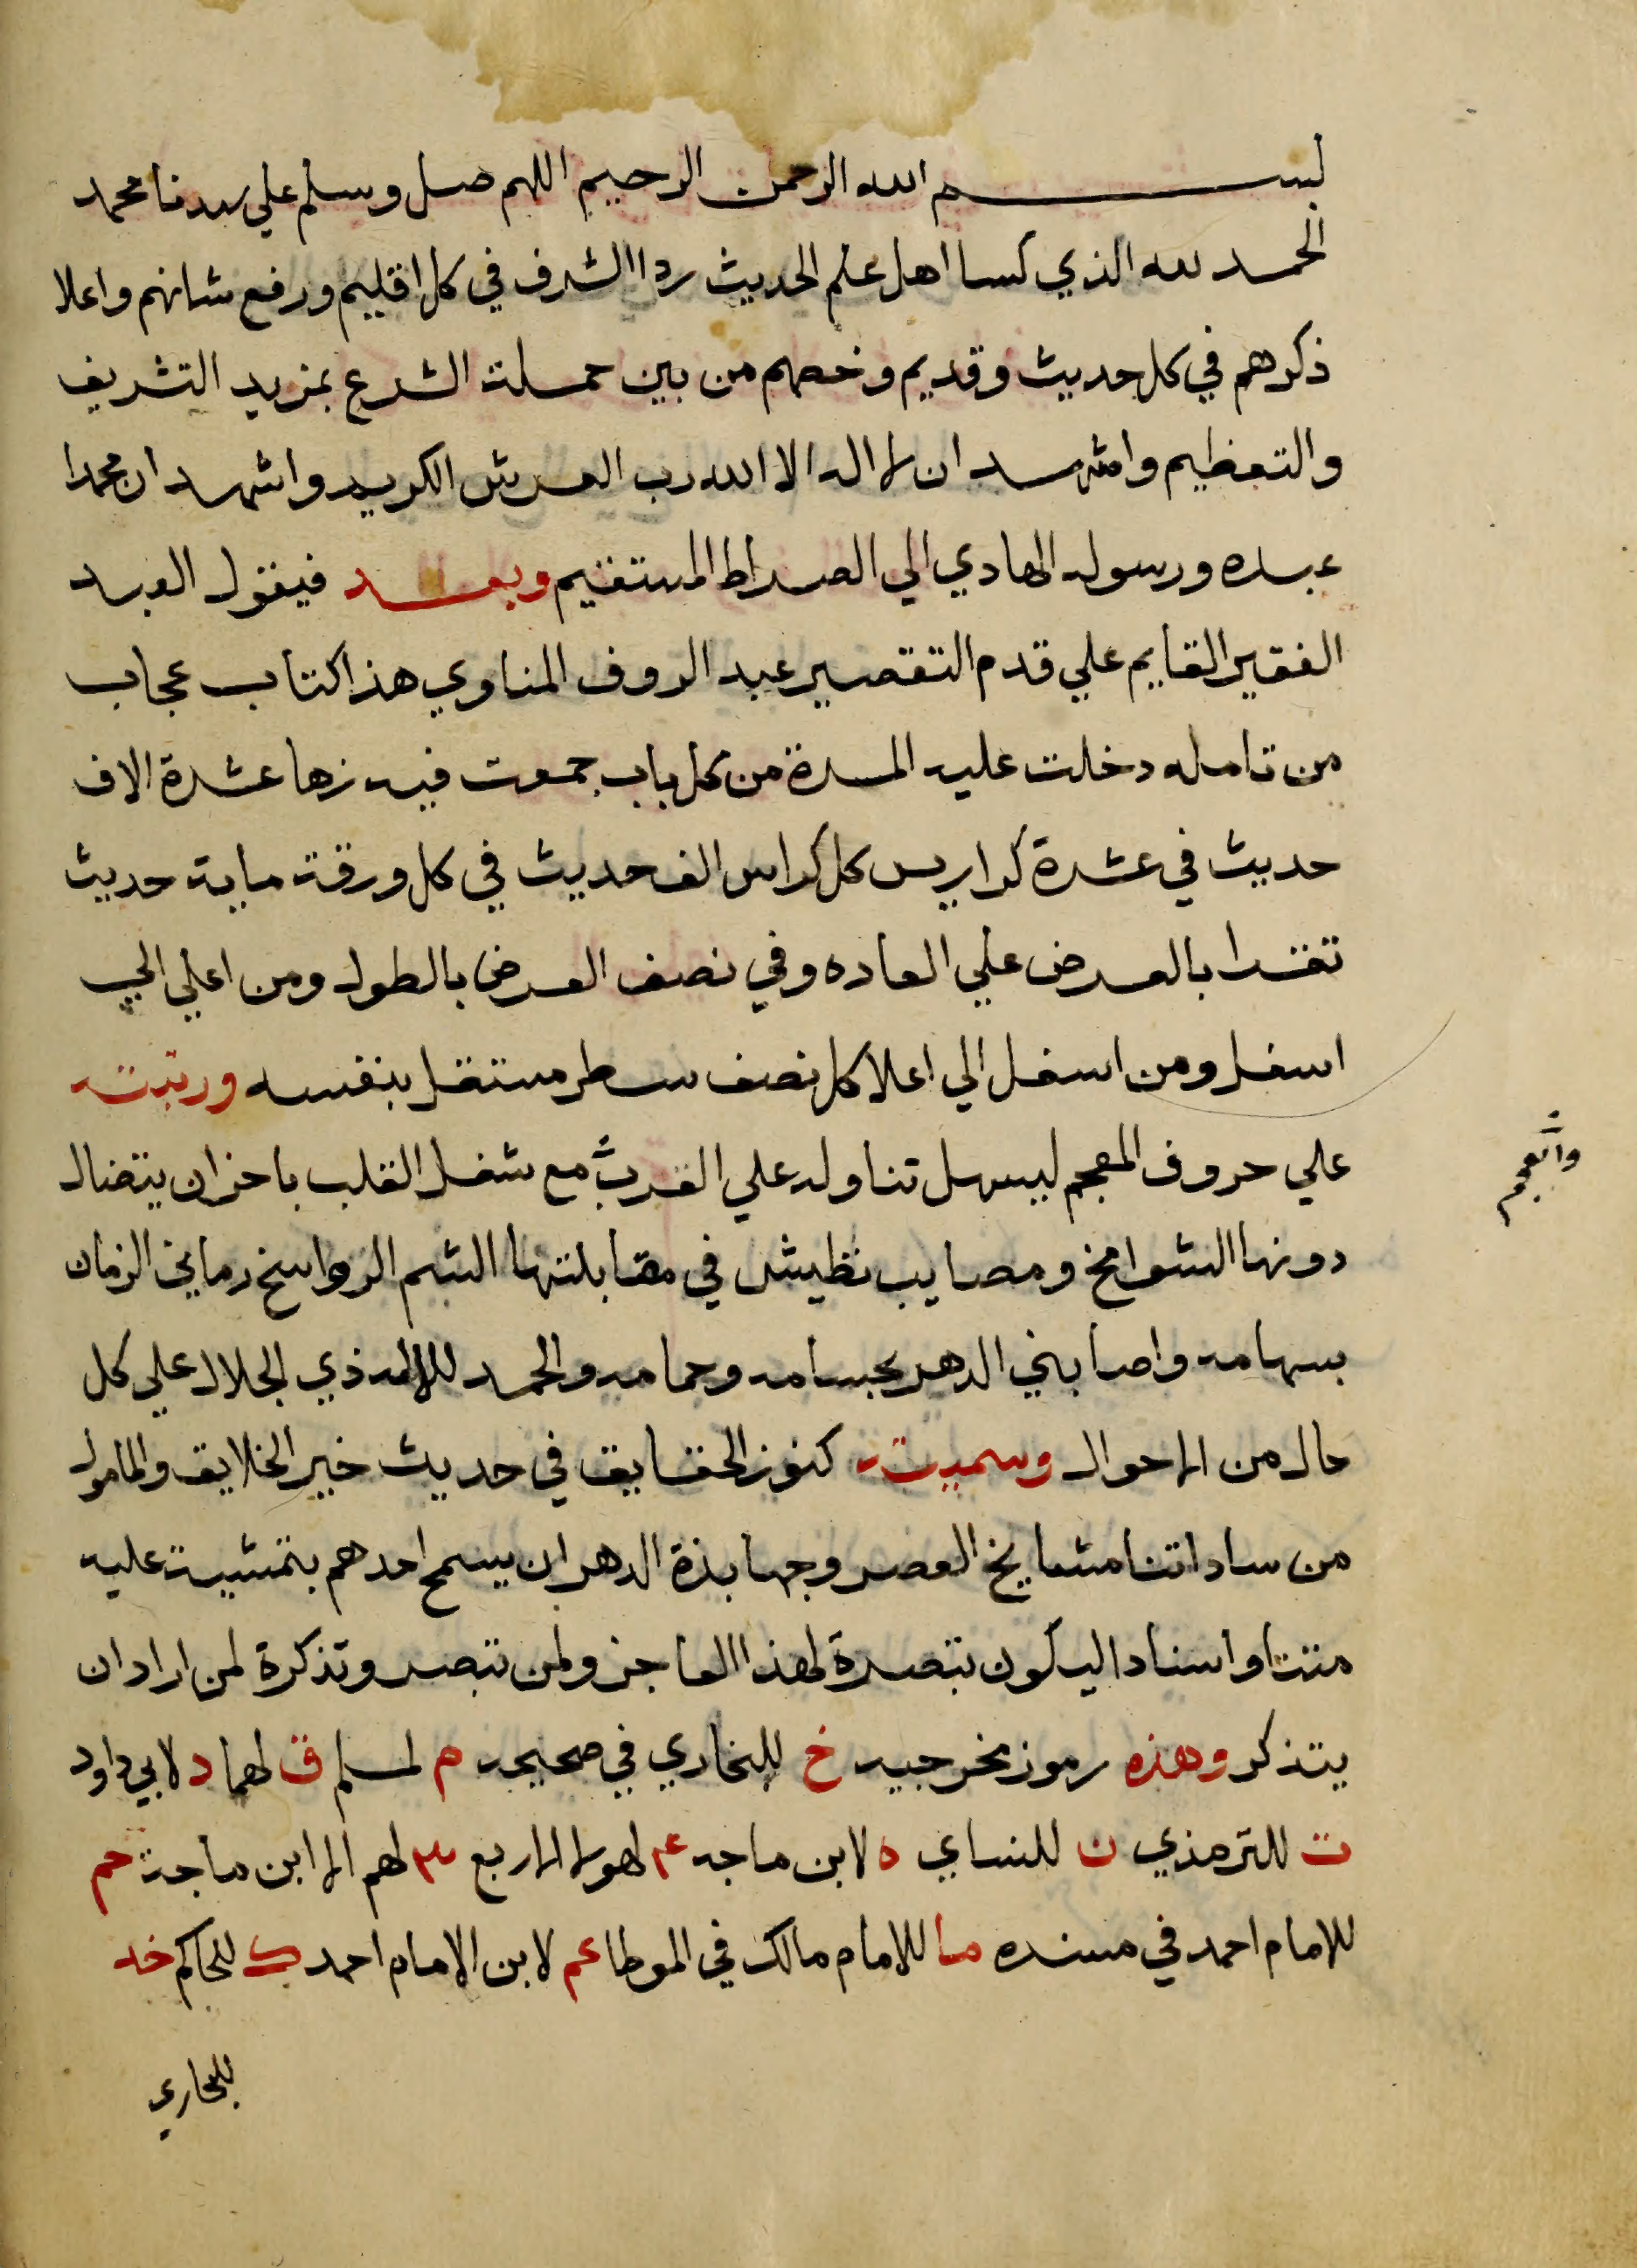 بسم الله الرحمن الرحيم اللهم صل وسلم علي سيدنا محمد
الحمد لله الذي كسا اهل علم الحديث ردا الشرف في كل اقليم ورفع شانهم واعلا
ذكرهم في كل حديث وقديم وخصهم من بين حملة الشرع بمزيد التشريف
والتعظيم واشهد ان لا اله الا الله رب العرش الكريم واشهد ان محمدا
عبده ورسوله الهادي الي الصراط المستقيم وبعد فيقول العبد
الفقير القايم علي قدم التقصير عبد الروف المناوي هذا كتاب عجاب
من تامله دخلت عليه المسرة من كل باب جمعت فيه زها عشرة الاف
حديث في عشرة كراريس كل كراس الف حديث في كل ورقة ماية حديث
تقرا بالعرض علي العاده وفي نصف العرض بالطول ومن اعلي الي
اسفل ومن اسفل الي اعلا كل نصف سطر مستقل بنفسه ورتبته
علي حروف المعجم ليسهل تناوله علي القرب مع شغل القلب باحزان يتضال
دونها الشوامخ ومصايب تطيش في مقابلتها الشم الرواسخ رماني الزمان
بسهامه واصابني الدهر بحسامه وحمامه والحمد للاله ذي الجلال علي كل
حال من الاحوال وسميته كنوز الحقايق في حديث خير الخلايق والمامول
من ساداتنا مشايخ العصر وجهابذة الدهر ان يسمح احدهم بتمشيته عليه
متنا واسنادا ليكون تبصرة لهذا العاجز ولمن تبصر وتذكرة لمن اراد ان
يتذكر وهذه رموز مخرجيه خ للبخاري في صحيحه م لمسلم ق لهما د لابي داود
ت للترمذي ن للنساي ه لابن ماجه ٤ لهولا الاربع ٣ لهم الا ابن ماجة حم
للامام احمد في مسنده ما للامام مالك في الموطا عم لابن الامام احمد ك للحاكم خد
للبخاري